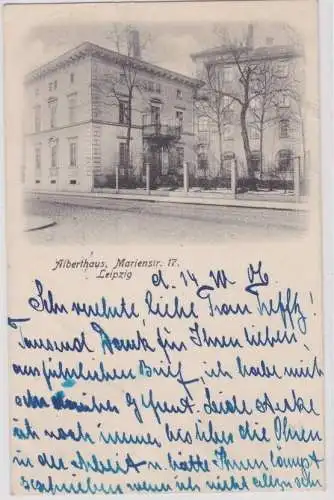 Alberthaus, Marienstr. 17.
Leipzig
d. 14 06
Sehr verehrte, liebe Frau Hefftz!
Tausend Dank für Ihren lieben,
ausführlichen Brief, ich habe mich
sehr darüber gefreut. Leider stecke
ich noch immer bis über die Ohren
in der Arbeit u. hätte Ihnen längst
geschrieben wenn ich nicht allem